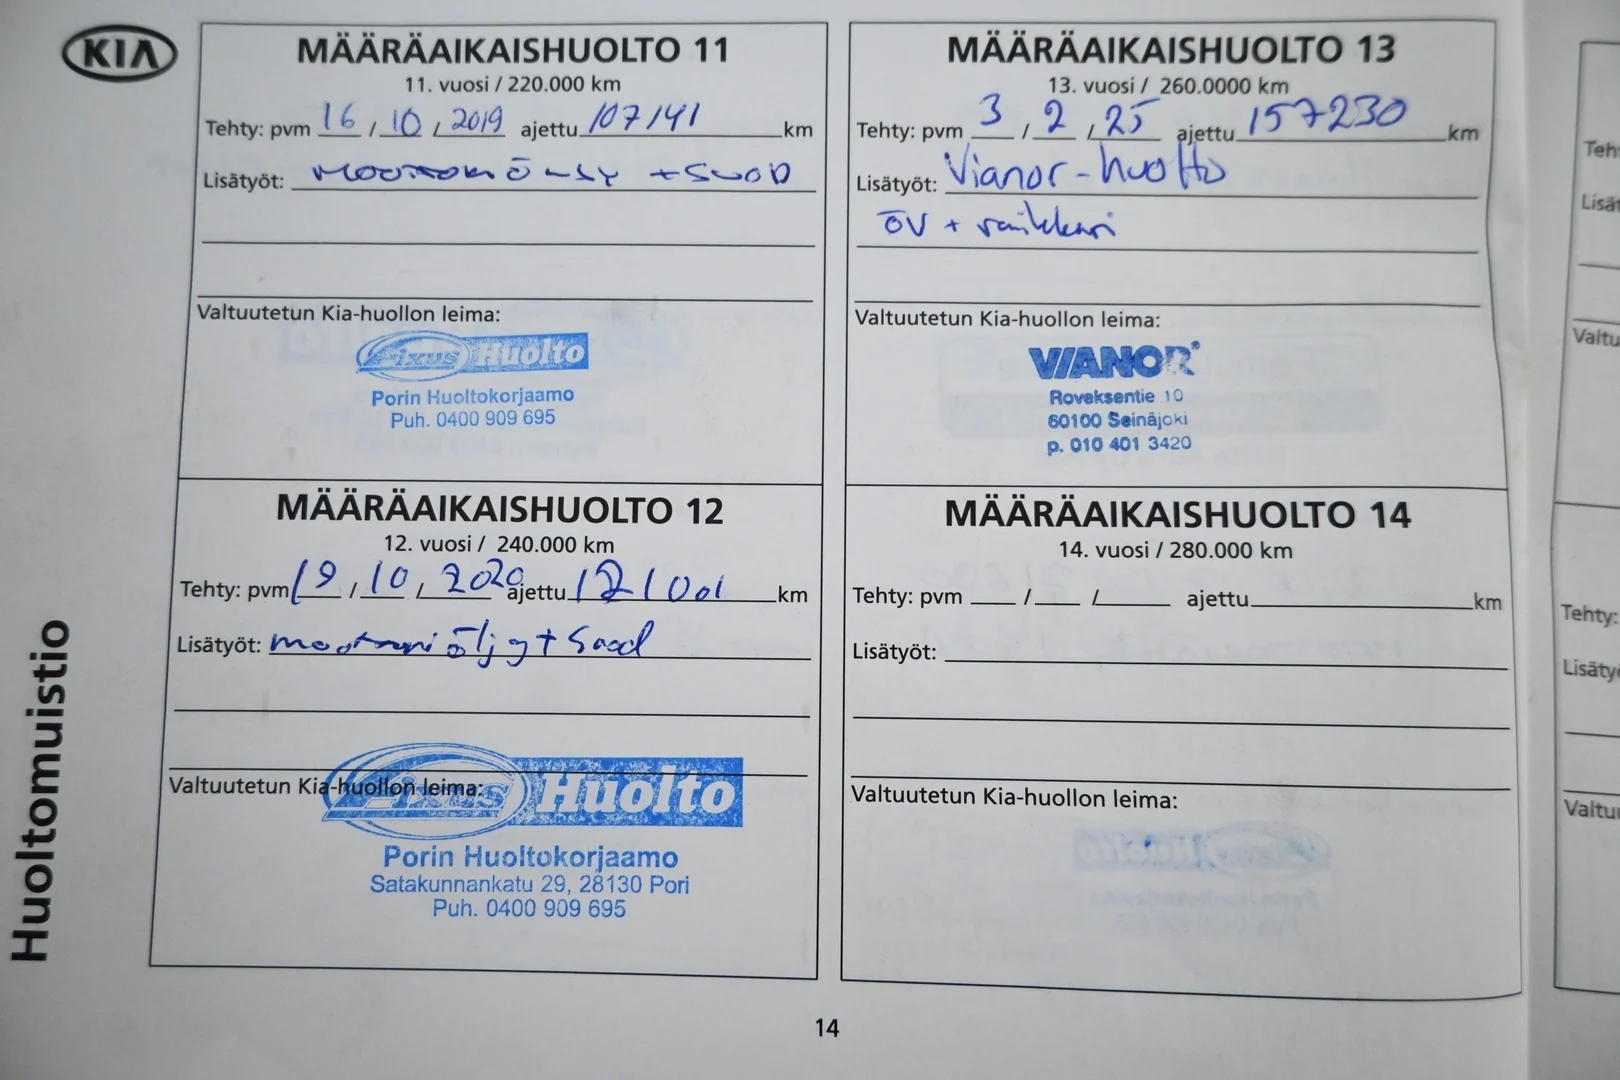 KIA
Huoltomuistio
MÄÄRÄAIKAISHUOLTO 11
11. vuosi / 220.000 km
Tehty: pvm 16 / 10 / 2019 ajettu 107141 km
Lisätyöt: moottoriöljy + suod
Valtuutetun Kia-huollon leima:
Fixus Huolto
Porin Huoltokorjaamo
Puh. 0400 909 695
MÄÄRÄAIKAISHUOLTO 12
12. vuosi / 240.000 km
Tehty: pvm 19 / 10 / 2020 ajettu 121001 km
Lisätyöt: moottoriöljy + Suod
Valtuutetun Kia-huollon leima:
Fixus Huolto
Porin Huoltokorjaamo
Satakunnankatu 29, 28130 Pori
Puh. 0400 909 695
MÄÄRÄAIKAISHUOLTO 13
13. vuosi / 260.0000 km
Tehty: pvm 3 / 2 / 25 ajettu 157230 km
Lisätyöt: Vianor-huolto
ÖV + raikkari
Valtuutetun Kia-huollon leima:
VIANOR
Roveksentie 10
60100 Seinäjoki
p. 010 401 3420
MÄÄRÄAIKAISHUOLTO 14
14. vuosi / 280.000 km
Tehty: pvm ___ / ___ / ___ ajettu ___ km
Lisätyöt:
Valtuutetun Kia-huollon leima:
14
Teh
Lisät
Valtu
Tehty:
Lisäty
Valtuu